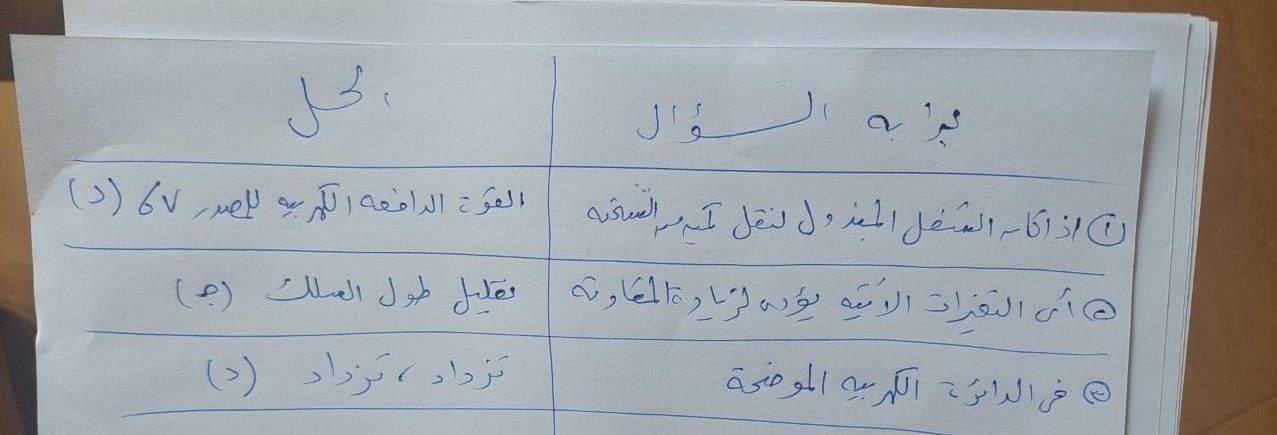 بداية السؤال	الحل
① اذا كان الشغل المبذول لنقل كمية من الشحنة	القوة الدافعه الكهربيه للمصدر 6V (د)
② أى التغيرات الأتيه يؤدى لزيادة المقاومة	تقليل طول السلك (ج)
③ فى الدائرة الكهربيه الموضحة	تزداد ، تزداد (د)